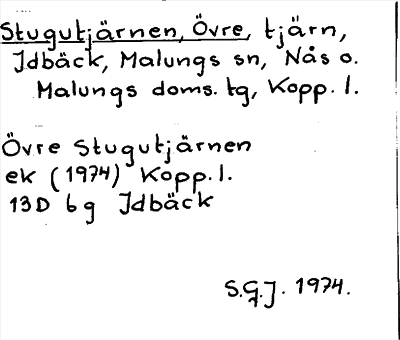 Stugutjärnen, Övre, tjärn,
Idbäck, Malungs sn, Nås o.
Malungs doms. tg, Kopp. l.
Övre Stugutjärnen
ek (1974) Kopp. l.
13D 6g Idbäck
S.G.J. 1974.